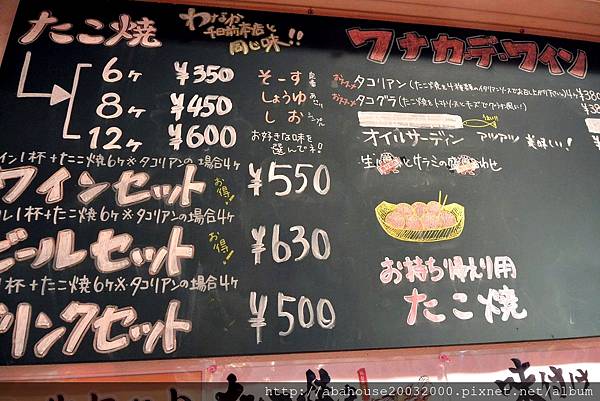 たこ焼
わなか
千日前本店と
同じ味!!
6ヶ ¥350
8ヶ ¥450
12ヶ ¥600
そーす
しょうゆ
しお
お好きな味を
選んでネ!
イン1杯+たこ焼6ヶ※タコリアンの場合4ヶ
ワインセット お得! ¥550
ル1杯+たこ焼6ヶ※タコリアンの場合4ヶ
ビールセット お得! ¥630
1杯+たこ焼6ヶ※タコリアンの場合4ヶ
リンクセット ¥500
ワナカデ・ワイン
おススメ タコリアン
おススメ タコグラ
オイルサーディン アツアツ 美味しい!
お持ち帰えり用
たこ焼
http://abahouse20032000.pixnet.net/album